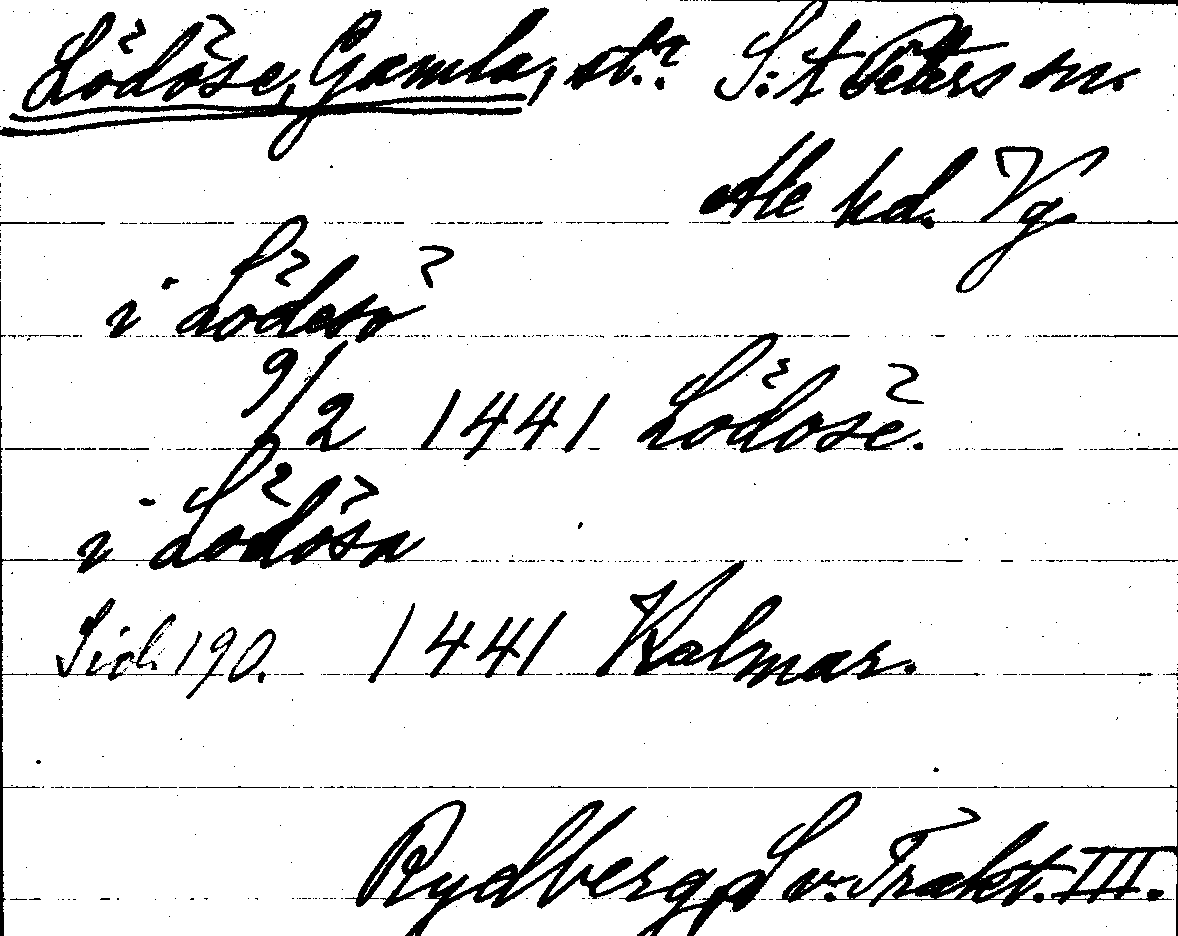 Lödöse, Gamla, st.? S:t Peters sn.
Ale hd. Vg.
i Lödesö
9/2 1441 Lödöse.
i Lödösa
Sid. 190. 1441 Kalmar.
Rydberg, Sv. Trakt. III.